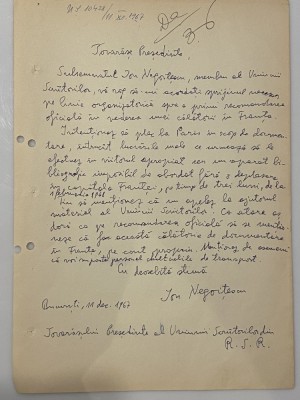 Nr. 10428
/11 XII. 1967
Da
Tovarășe Președinte,
Subsemnatul Ion Negoițescu, membru al Uniunii
Scriitorilor, vă rog să-mi acordați sprijinul necesar
pe linie organizatorică spre a primi recomandarea
oficială în vederea unei călătorii în Franța.
Intenționez să plec la Paris în scop de documen-
tare, întrucît lucrările mele ce urmează să le
efectuez în viitorul apropiat cer un aparat bi-
bliografic imposibil de abordat fără o deplasare
în capitala Franței, pe timp de trei luni, de la
1968
Țin să menționez că nu apelez la ajutorul
material al Uniunii Scriitorilor. Ca atare aș
dori ca pe recomandarea oficială să se mentio-
neze că fac această călătorie de documentare
în Franța, pe cont propriu. Menționez de asemeni
că voi suporta personal cheltuielile de transport.
Cu deosebită stimă
Ion Negoițescu
București, 11 dec. 1967
Tovarășului Președinte al Uniunii Scriitorilor din
R. S. R.